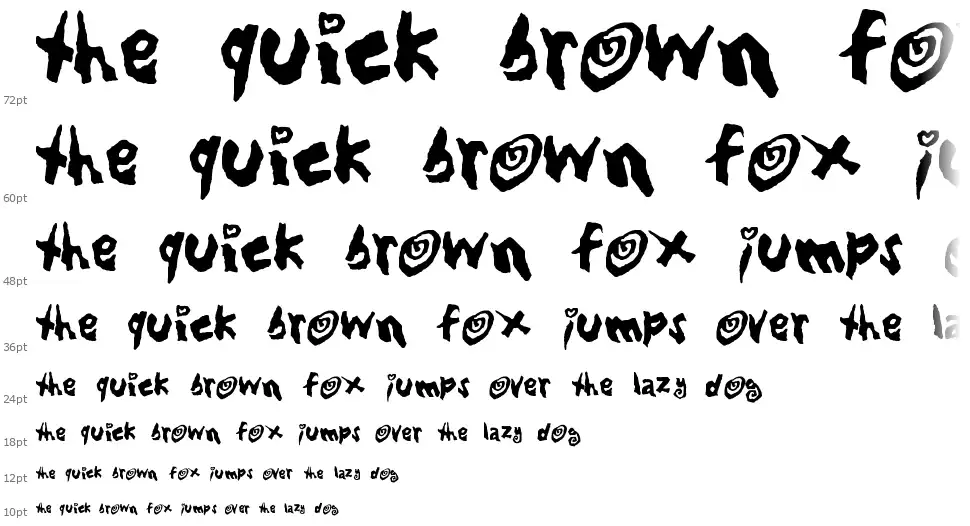 the quick brown fo
72pt
the quick brown fox ju
60pt
the quick brown fox jumps o
48pt
the quick brown fox jumps over the la
36pt
the quick brown fox jumps over the lazy dog
24pt
the quick brown fox jumps over the lazy dog
18pt
the quick brown fox jumps over the lazy dog
12pt
the quick brown fox jumps over the lazy dog
10pt